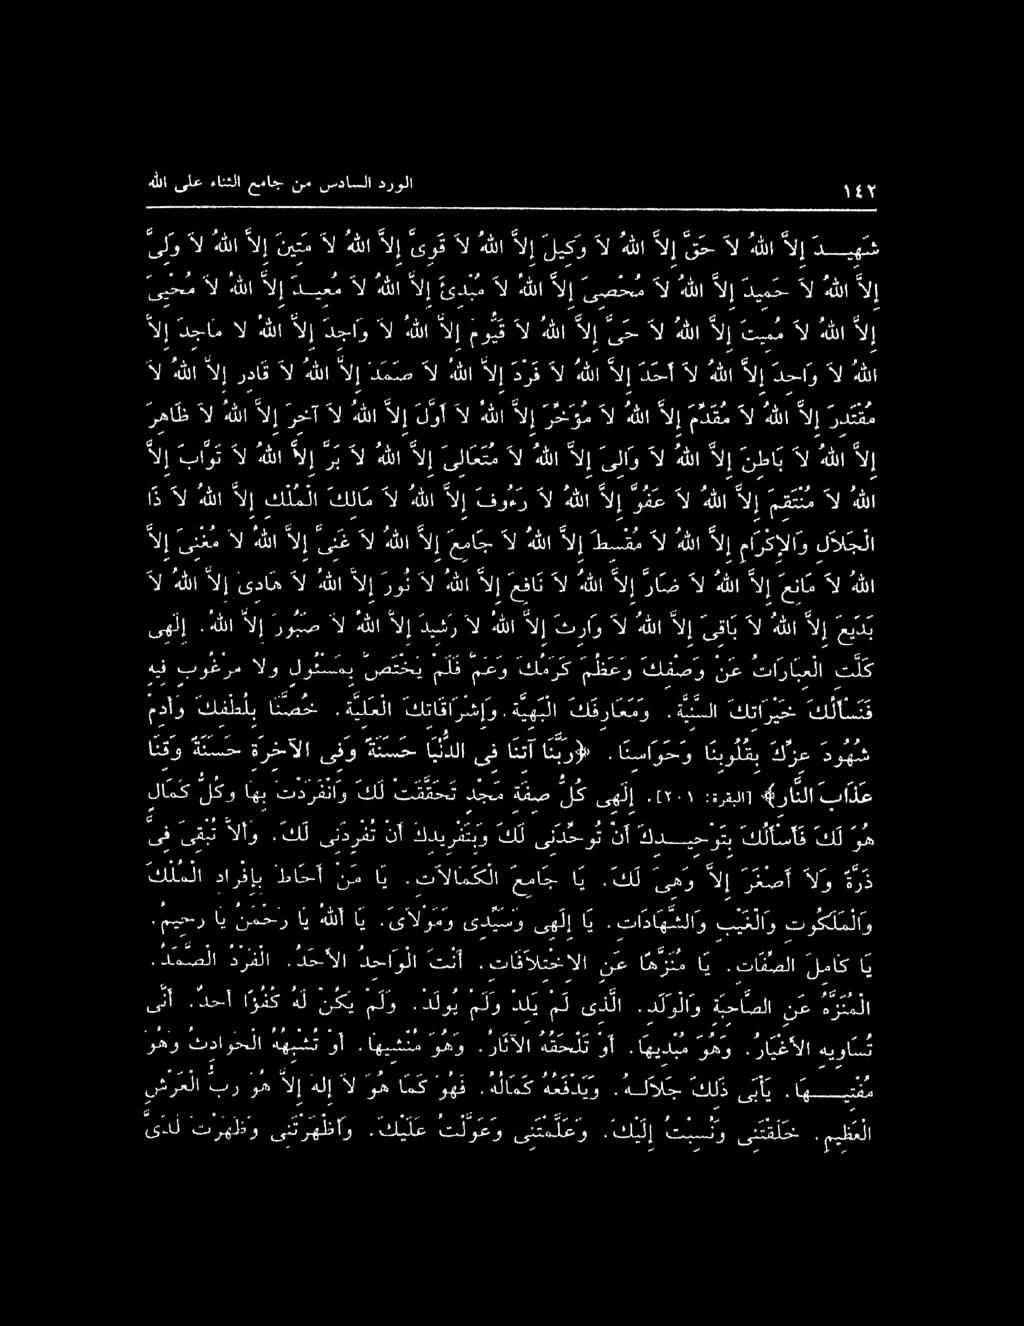 ١٤٢ الورد السادس من جامع الثناء على الله
شَهِيــدَ إِلاَّ اللهُ لاَ حَقَّ إِلاَّ اللهُ لاَ وَكِيلَ إِلاَّ اللهُ لاَ قَوِىَّ إِلاَّ اللهُ لاَ مَتِينَ إِلاَّ اللهُ لاَ وَلِىَّ
إِلاَّ اللهُ لاَ حَمِيدَ إِلاَّ اللهُ لاَ مُحْصِىَ إِلاَّ اللهُ لاَ مُبْدِئَ إِلاَّ اللهُ لاَ مُعِيــدَ إِلاَّ اللهُ لاَ مُحْيِىَ
إِلاَّ اللهُ لاَ مُمِيتَ إِلاَّ اللهُ لاَ حَىَّ إِلاَّ اللهُ لاَ قَيُّومَ إِلاَّ اللهُ لاَ وَاجِدَ إِلاَّ اللهُ لاَ مَاجِدَ إِلاَّ
اللهُ لاَ وَاحِدَ إِلاَّ اللهُ لاَ أَحَدَ إِلاَّ اللهُ لاَ فَرْدَ إِلاَّ اللهُ لاَ صَمَدَ إِلاَّ اللهُ لاَ قَادِرَ إِلاَّ اللهُ لاَ
مُقْتَدِرَ إِلاَّ اللهُ لاَ مُقَدِّمَ إِلاَّ اللهُ لاَ مُؤَخِّرَ إِلاَّ اللهُ لاَ أَوَّلَ إِلاَّ اللهُ لاَ آخِرَ إِلاَّ اللهُ لاَ ظَاهِرَ
إِلاَّ اللهُ لاَ بَاطِنَ إِلاَّ اللهُ لاَ وَالِىَ إِلاَّ اللهُ لاَ مُتَعَالِىَ إِلاَّ اللهُ لاَ بَرَّ إِلاَّ اللهُ لاَ تَوَّابَ إِلاَّ
اللهُ لاَ مُنْتَقِمَ إِلاَّ اللهُ لاَ عَفُوَّ إِلاَّ اللهُ لاَ رَءُوفَ إِلاَّ اللهُ لاَ مَالِكَ الْمُلْكِ إِلاَّ اللهُ لاَ ذَا
الْجَلاَلِ وَالإِكْرَامِ إِلاَّ اللهُ لاَ مُقْسِطَ إِلاَّ اللهُ لاَ جَامِعَ إِلاَّ اللهُ لاَ غَنِىَّ إِلاَّ اللهُ لاَ مُغْنِىَ إِلاَّ
اللهُ لاَ مَانِعَ إِلاَّ اللهُ لاَ ضَارَّ إِلاَّ اللهُ لاَ نَافِعَ إِلاَّ اللهُ لاَ نُورَ إِلاَّ اللهُ لاَ هَادِىَ إِلاَّ اللهُ لاَ
بَدِيعَ إِلاَّ اللهُ لاَ بَاقِىَ إِلاَّ اللهُ لاَ وَارِثَ إِلاَّ اللهُ لاَ رَشِيدَ إِلاَّ اللهُ لاَ صَبُورَ إِلاَّ اللهُ. إِلَهِى
كَلَّتِ الْعِبَارَاتُ عَنْ وَصْفِكَ وَعَظُمَ كَرَمُكَ وَعَمَّ فَلَمْ يَخْتَصَّ بِمَسْئُولٍ ولا مرغُوبٍ فِيهِ
فَنَسْأَلُكَ خَيْرَاتِكَ السَّنِيَّةَ. وَمَعَارِفَكَ الْبَهِيَّةَ. وَإِشْرَاقَاتِكَ الْعَلِيَّةَ. خُصَّنَا بِلُطْفِكَ وَأَدِمْ
شُهُودَ عِزِّكَ بِقُلُوبِنَا وَحَوَاسِنَا. ﴿رَبَّنَا آتِنَا فِى الدُّنْيَا حَسَنَةً وَفِى الآخِرَةِ حَسَنَةً وَقِنَا
عَذَابَ النَّارِ﴾ [البقرة: ٢٠١]. إِلَهِى كُلُّ صِفَةِ مَجْدٍ تَحَقَّقَتْ لَكَ وَانْفَرَدْتَ بِهَا وَكُلُّ كَمَالٍ
هُوَ لَكَ فَأَسْأَلُكَ بِتَوْحِيــدِكَ أَنْ تُوَحِّدَنِى لَكَ وَبِتَفْرِيدِكَ أَنْ تُفْرِدَنِى لَكَ. وَأَلاَّ تُبْقِىَ فِىَّ
ذَرَّةً وَلاَ أَصْغَرَ إِلاَّ وَهِىَ لَكَ. يَا جَامِعَ الْكَمَالاَتِ. يَا مَنْ أَحَاطَ بِإِفْرَادِ الْمُلْكِ
وَالْمَلَكُوتِ وَالْغَيْبِ وَالشَّهَادَاتِ. يَا إِلَهِى وَسَيِّدِى وَمَوْلاَىَ. يَا أَللهُ يَا رَحْمَنُ يَا رحيمُ.
يَا كَامِلَ الصِّفَاتِ. يَا مُنَزَّهًا عَنِ الاِخْتِلاَفَاتِ. أَنْتَ الْوَاحِدُ الأَحَدُ. الْفَرْدُ الصَّمَدُ.
الْمُنَزَّهُ عَنِ الصَّاحِبَةِ وَالْوَلَدِ. الَّذِى لَمْ يَلِدْ وَلَمْ يُولَدْ. وَلَمْ يَكُنْ لَهُ كُفُؤًا أَحدٌ. أَنَّى
تُسَاوِيهِ الأَغْيَارُ. وَهُوَ مُبْدِيهَا. أَوْ تَلْحَقُهُ الآثَارُ. وَهُوَ مُنْشِيهَا. أَوْ تُشْبِهُهُ الْحَوَادِثُ وَهُوَ
مُفْنِيــهَا. يَأْبَى ذَلِكَ جَلاَلُــهُ. وَيَدْفَعُهُ كَمَالُهُ. فَهُوَ كَمَا هُوَ لاَ إِلهَ إِلاَّ هُوَ ربُّ الْعَرْشِ
الْعَظِيمِ. خَلَقْتَنِى وَنُسِبْتُ إِلَيْكَ. وَعَلَّمْتَنِى وَعَوَّلْتُ عَلَيْكَ. وَأَظْهَرْتَنِى وَظَهَرْتَ لَدَىَّ